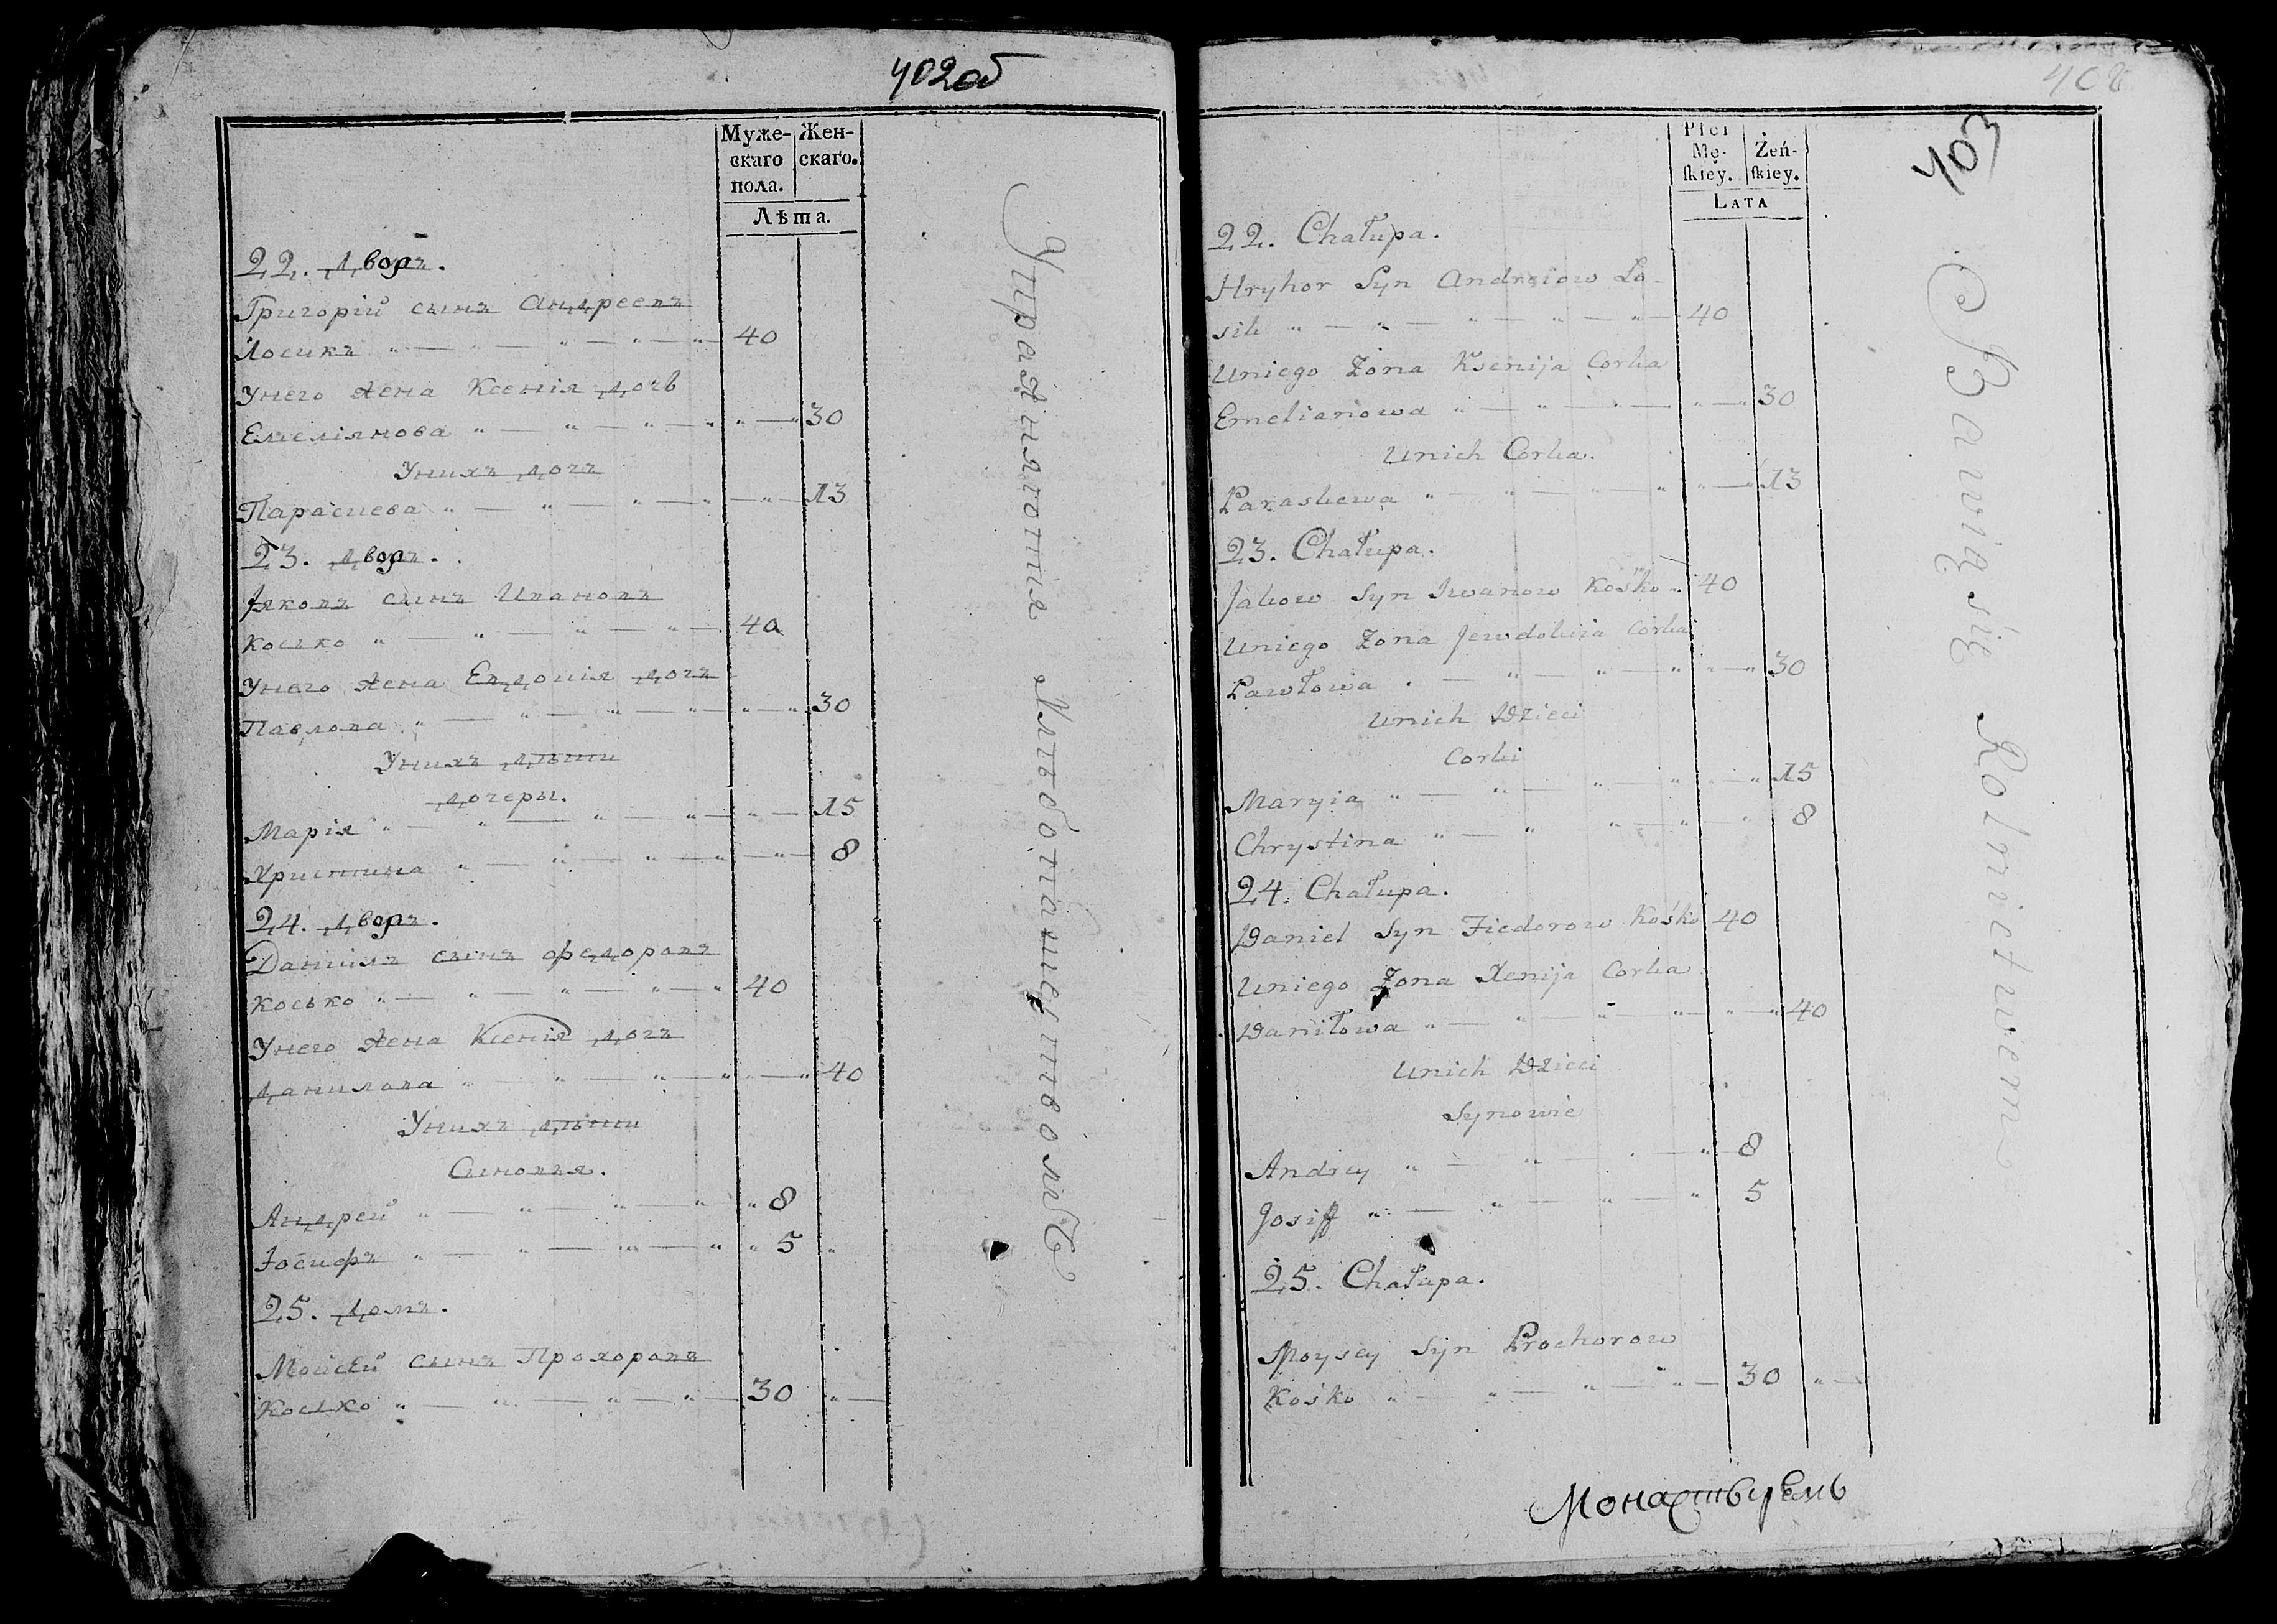 402об
Муже-
скаго
пола.
Жен-
скаго.
Лѣта.
22. дворъ.
Григорій сынъ Андреевъ
Лосикъ 40
Унего жена Ксенія дочь
Емеліянова 30
Унихъ дочъ
Параскева 13
23. дворъ.
Яковъ сынъ Ивановъ
Косько 40
Унего жена Евдокія дочъ
Павлова 30
Унихъ дѣти
дочеры.
Марія 15
Христина 8
24. дворъ.
Данилъ сынъ Федоровъ
Косько 40
Унего жена Ксенія дочъ
Данилова 40
Унихъ дѣти
Сыновья.
Андрей 8
Іосифъ 5
25. домъ.
Мойсей сынъ Прохоровъ
Косько 30
Упражняются хлѣбопашествомъ
403
Płci
Mę-
skiey.
Żeń-
skiey.
LATA
22. Chałupa.
Hryhor Syn Andreiow Ło-
sik 40
Uniego Żona Ksenija Corka
Emelianowa 30
Unich Corka.
Paraskewa 13
23. Chałupa.
Jakow Syn Iwanow Kośko 40
Uniego Żona Jewdokija Corka
Pawłowa 30
Unich Dzieci
Corki
Maryia 15
Chrystina 8
24. Chałupa.
Daniel Syn Fiedorow Kośko 40
Uniego Żona Xenija Corka
Daniłowa 40
Unich Dzieci
Synowie
Andrey 8
Josiff 5
25. Chałupa.
Moysey Syn Prochorow
Kośko 30
Bawią się Rolnictwem